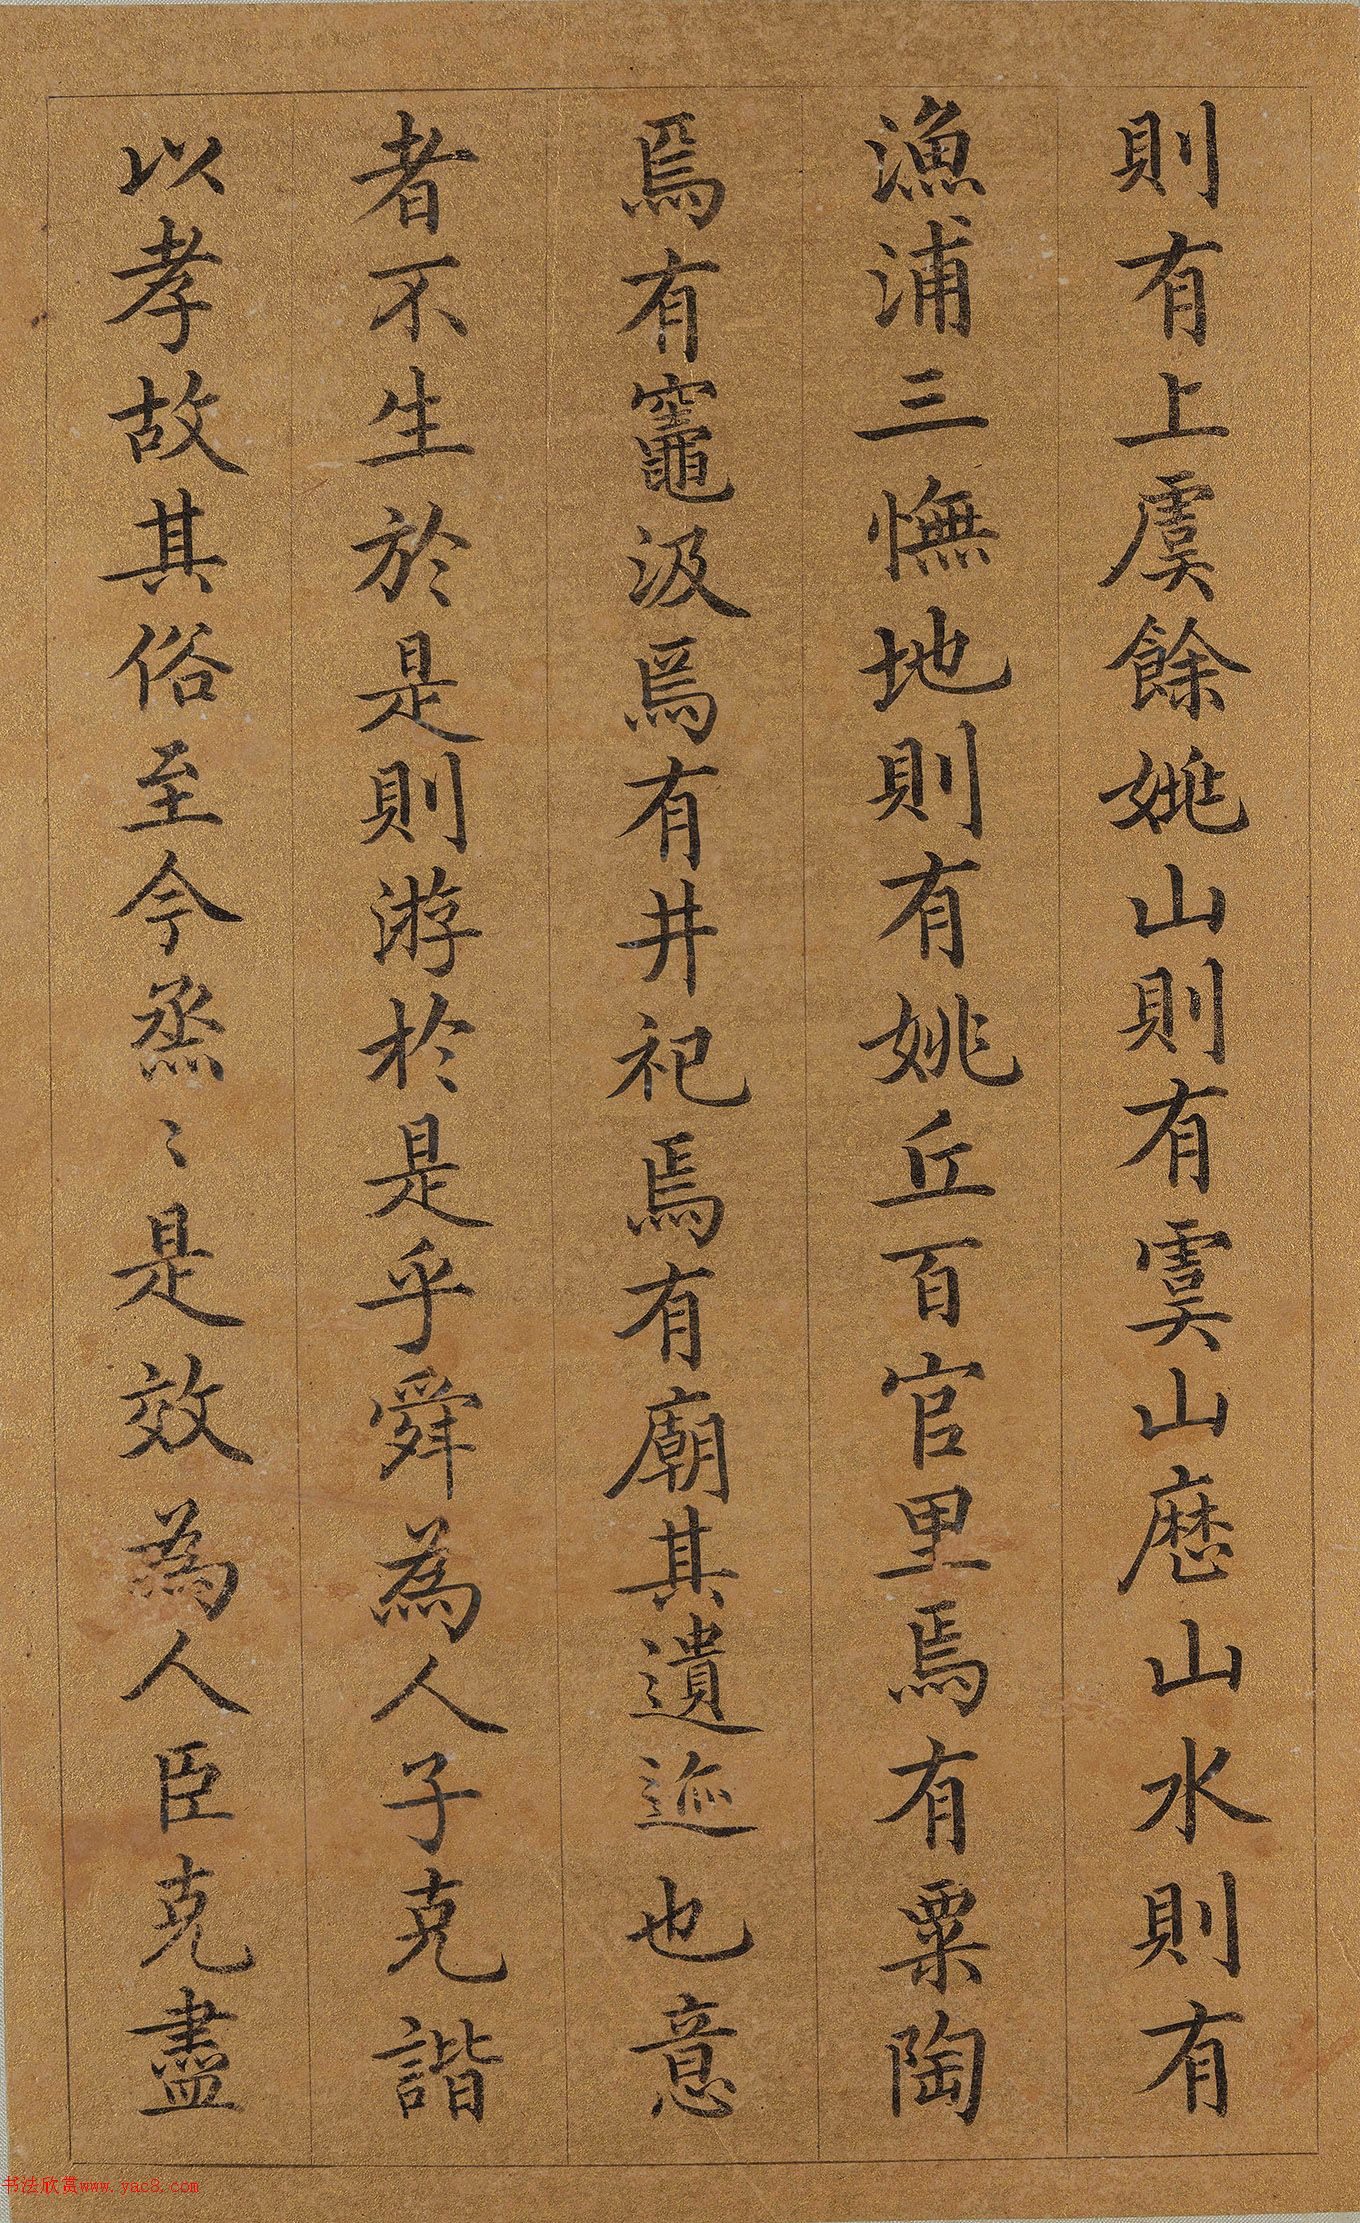 則有上虞餘姚山則有虞山歷山水則有
漁浦三憮地則有姚丘百官里焉有粟陶
焉有竈汲焉有井祀焉有廟其遺迹也意
者不生於是則游於是乎舜為人子克諧
以孝故其俗至今烝〻是效為人臣克盡
书法欣赏www.yac8.com